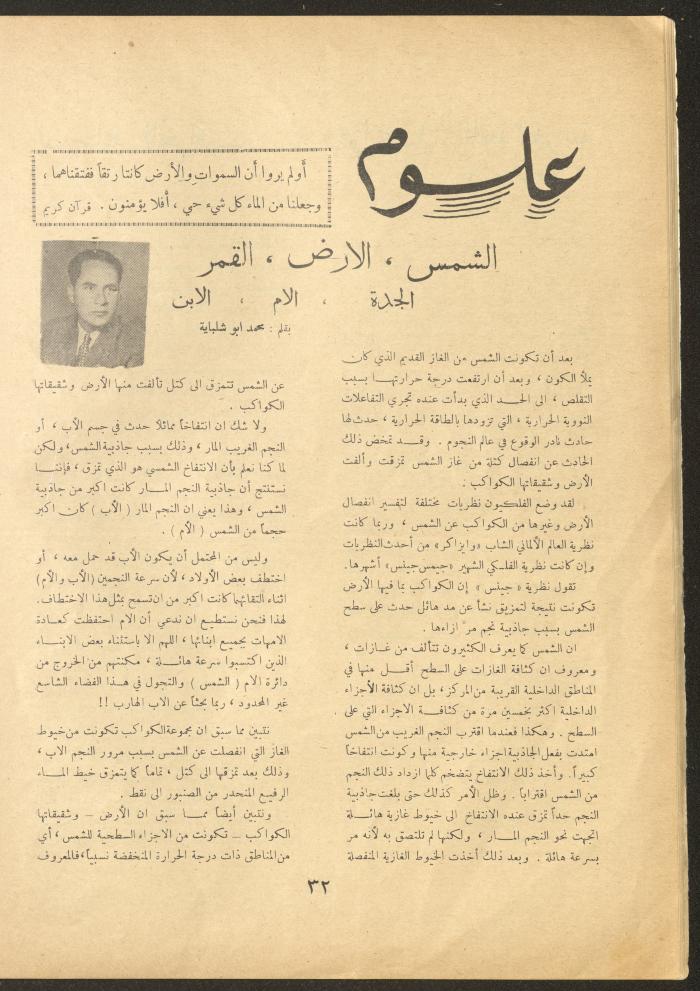 علوم
أولم يروا أن السموات والأرض كانتا رتقاً ففتقناهما ،
وجعلنا من الماء كل شيء حي ، أفلا يؤمنون . قرآن كريم
الشمس ، الارض ، القمر
الجدة ، الام ، الابن
بقلم : محمد ابو شلباية
بعد أن تكونت الشمس من الغاز القديم الذي كان
يملأ الكون ، وبعد أن ارتفعت درجة حرارتهـا بسبب
التقلص ، الى الحـد الذي بدأت عنده تجري التفاعلات
النووية الحرارية ، التي تزودها بالطاقة الحرارية ، حدث لها
حادث نادر الوقوع في عالم النجوم . وقـد تمخض ذلك
الحادث عن انفصال كتلة من غاز الشمس تمزقت وألفت
الأرض وشقيقاتها الكواكب .
لقد وضع الفلكيون نظريات مختلفة لتفسير انفصال
الأرض وغيرها من الكواكب عن الشمس ، وربما كانت
نظرية العالم الألماني الشاب «وايزاكر» من أحدث النظريات
وإن كانت نظرية الفلسكي الشهير «جيمس جينس» أشهرها.
تقول نظرية « جينس » إن الكواكب بما فيها الأرض
تكونت نتيجة لتمزيق نشأ عن مد هائل حدث على سطح
الشمس بسبب جاذبية نجم مر ازاءها .
ان الشمس كما يعرف الكثيرون تتألف من غازات ،
ومعروف ان كثافة الغازات على السطح أقـل منها في
المناطق الداخلية القريبة من المركز، بل ان كثافة الأجزاء
الداخلية اكثر بخمسين مرة من كثافـة الاجزاء التي على
السطح . وهكذا فعندما اقترب النجم الغريب من الشمس
امتدت بفعل الجاذبية اجزاء خارجية منها وكونت انتفاخاً
كبيراً. وأخذ ذلك الانتفاخ يتضخم كلما ازداد ذلك النجم
من الشمس اقتراباً . وظل الأمر كذلك حتى بلغت جاذبية
النجم حداً تمزق عنده الانتفاخ الى خيوط غازية هائـلة
اتجهت نحو النجم المـار ، ولكنها لم تلتصق به لأنه مر
بسرعة هائلة . وبعد ذلك أخذت الخيوط الغازية المنفصلة
عن الشمس تتمزق الى كتل تألفت منها الأرض وشقيقاتها
الكواكب .
ولا شك ان انتفاخاً مماثلا حدث في جسم الأب ، أو
النجم الغريب المار ، وذلك بسبب جاذبية الشمس، ولكن
لما كنا نعلم بأن الانتفاخ الشمسي هو الذي تمزق ، فإننـا
نستنتج أن جاذبية النجم المـار كانت اكبر من جاذبية
الشمس ، وهذا يعني ان النجم المار ( الأب ) كان اكبر
حجماً من الشمس ( الأم ) .
وليس من المحتمل أن يكون الأب قد حمل معه ، أو
اختطف بعض الأولاد ، لأن سرعة النجمين (الأب والأم)
اثناء التقائهما كانت اكبر من ان تسمح بمثل هذا الاختطاف.
لهذا فنحن نستطيع ان ندعي أن الام احتفظت كعـادة
الامهات بجميع ابنائها ، اللهم الا باستثناء بعض الابنـاء
الذين اكتسبوا سرعة هائـلة ، مكنتهم من الخروج من
دائرة الام ( الشمس ) والتجول في هـذا الفضاء الشاسع
غير المحدود ، ربما بحثاً عن الاب الهارب !!
نتبين مما سبق ان مجموعة الكواكب تكونت من خيوط
الغاز التي انفصلت عن الشمس بسبب مرور النجم الاب ،
وذلك بعد تمزقها الى كتل ، تماماً كما يتمزق خيط المـاء
الرفيع المنحدر من الصنبور الى نقط .
ونتبين أيضاً ممـا سبق ان الأرض – وشقيقاتها
الكواكب – تكونت من الاجزاء السطحية للشمس ، أي
من المناطق ذات درجة الحرارة المنخفضة نسبياً، فالمعروف
٣٢